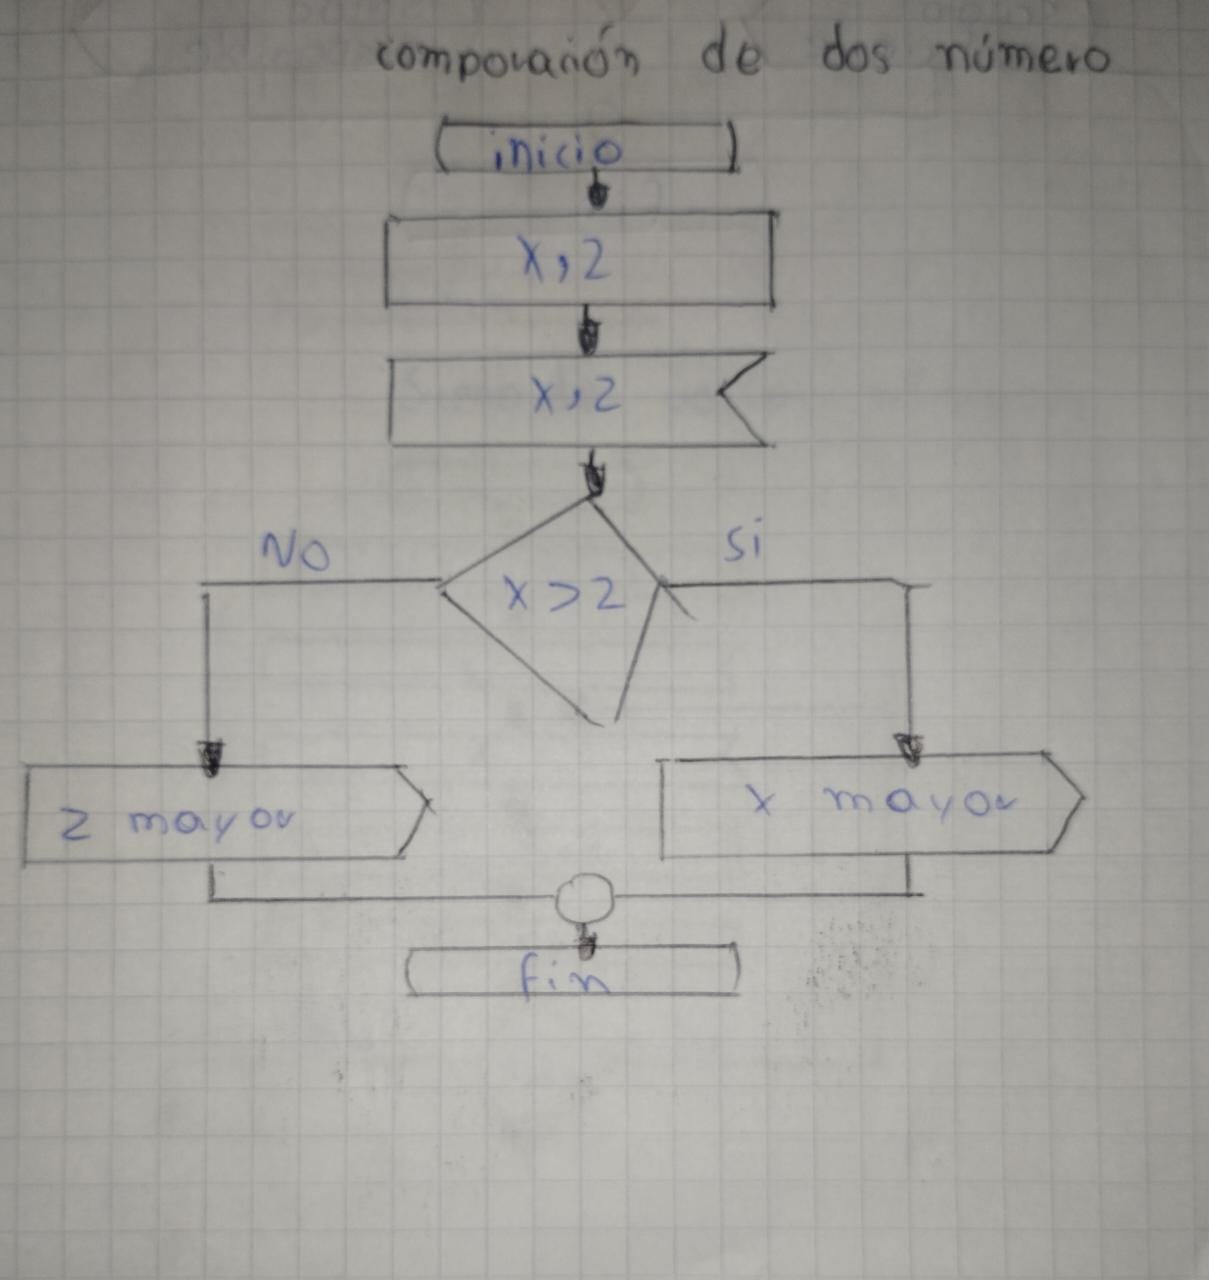 comparación de dos número
inicio
x,2
x,2
NO
Si
x > 2
2 mayor
x mayor
fin